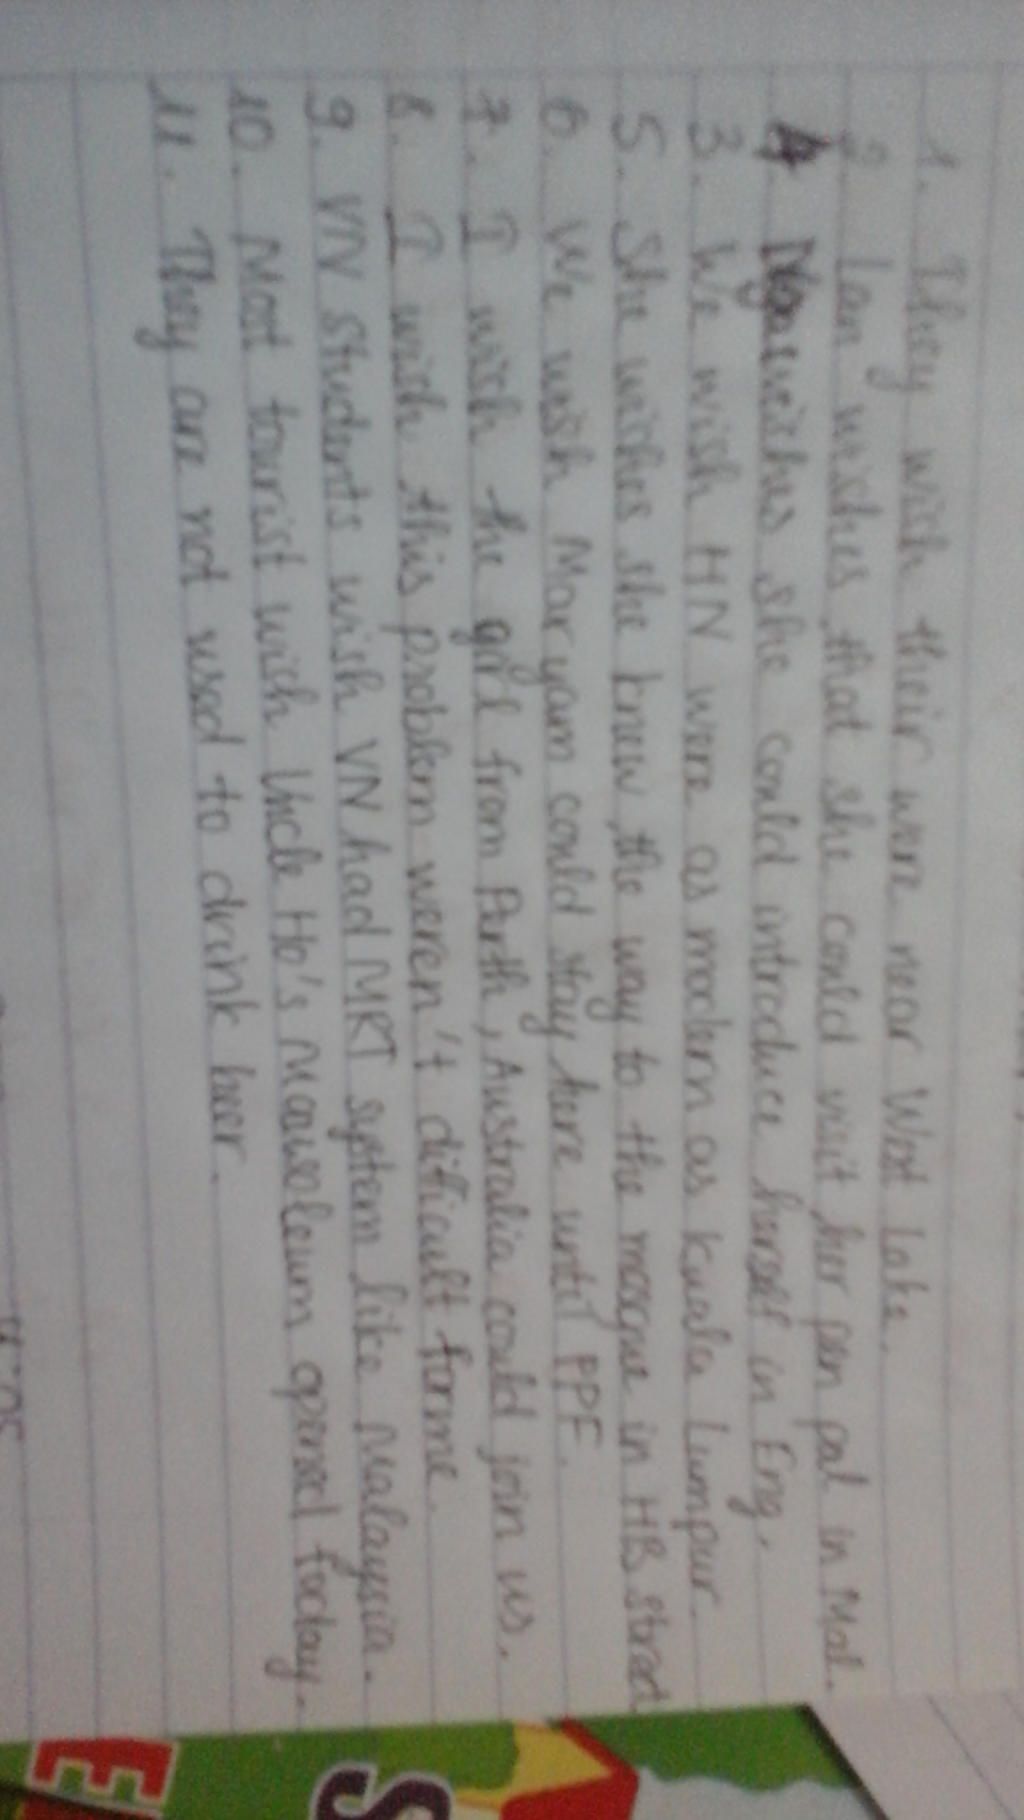 1. They wish their were near West Lake.
2 Lan wishes that she could visit her pen pal in Mal.
4 Nga wishes she could introduce herself in Eng.
3. We wish HN were as modern as Kuala Lumpur.
5. She wishes she knew the way to the mosque in HB street
6. We wish Maryam could stay here until PPF.
7. I wish the girl from Perth, Australia could join us.
8. I wish this problem weren't difficult for me.
9. VN students wish VN had MRT system like Malaysia.
10. Most tourist wish Uncle Ho's Mausoleum opened today.
11. They are not used to drink beer.
S
E